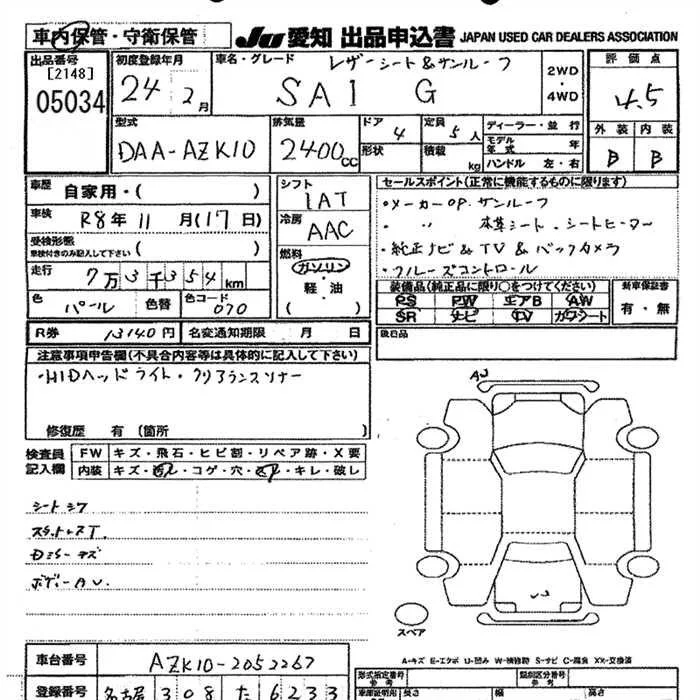 車内保管・守衛保管 JU 愛知 出品申込書 JAPAN USED CAR DEALERS ASSOCIATION
出品番号 [2148] 05034
初度登録年月 24 2月
車名・グレード レザーシート&サンルーフ
SAI G
2WD・4WD
評価点 4.5
外装 内装
B B
型式 DAA-AZK10
排気量 2400cc
ドア 4 定員 5人
形状 積載 kg
ディーラー・並行
モデル年式 年
ハンドル 左・右
車歴 自家用・( )
車検 R8年11月(17日)
受検形態 車検付きのみ記入して下さい ( )
走行 7万3千354km
色 パール 色替 色コード 070
シフト IAT
冷房 AAC
燃料 ガソリン・軽・油 ( )
セールスポイント(正常に機能するものに限ります)
・メーカーOP.サンルーフ
・ 〃 本革シート.シートヒーター
・純正ナビ&TV&バックカメラ
・クルーズコントロール
装備品(純正品に限り○をつけてください)
PS PW エアB AW
SR ナビ TV カワシート
新車保証書 有・無
R券 13140円 名変通知期限 月 日
後日品
注意事項申告欄(不具合内容等は具体的に記入して下さい)
・HIDヘッドライト・クリアランスソナー
修復歴 有(箇所
検査員記入欄
FW キズ・飛石・ヒビ割・リペア跡・X要
内装 キズ・汚れ・コゲ・穴・スレ・キレ・破し
シートシワ
ボディーAU.
A-キズ E-エクボ U-凹み W-補修跡 S-サビ C-腐食 XX-交換済
スペア
AU
車台番号 AZK10-2052267
登録番号 名古屋 308 た 6233
型式指定番号 類別区分番号